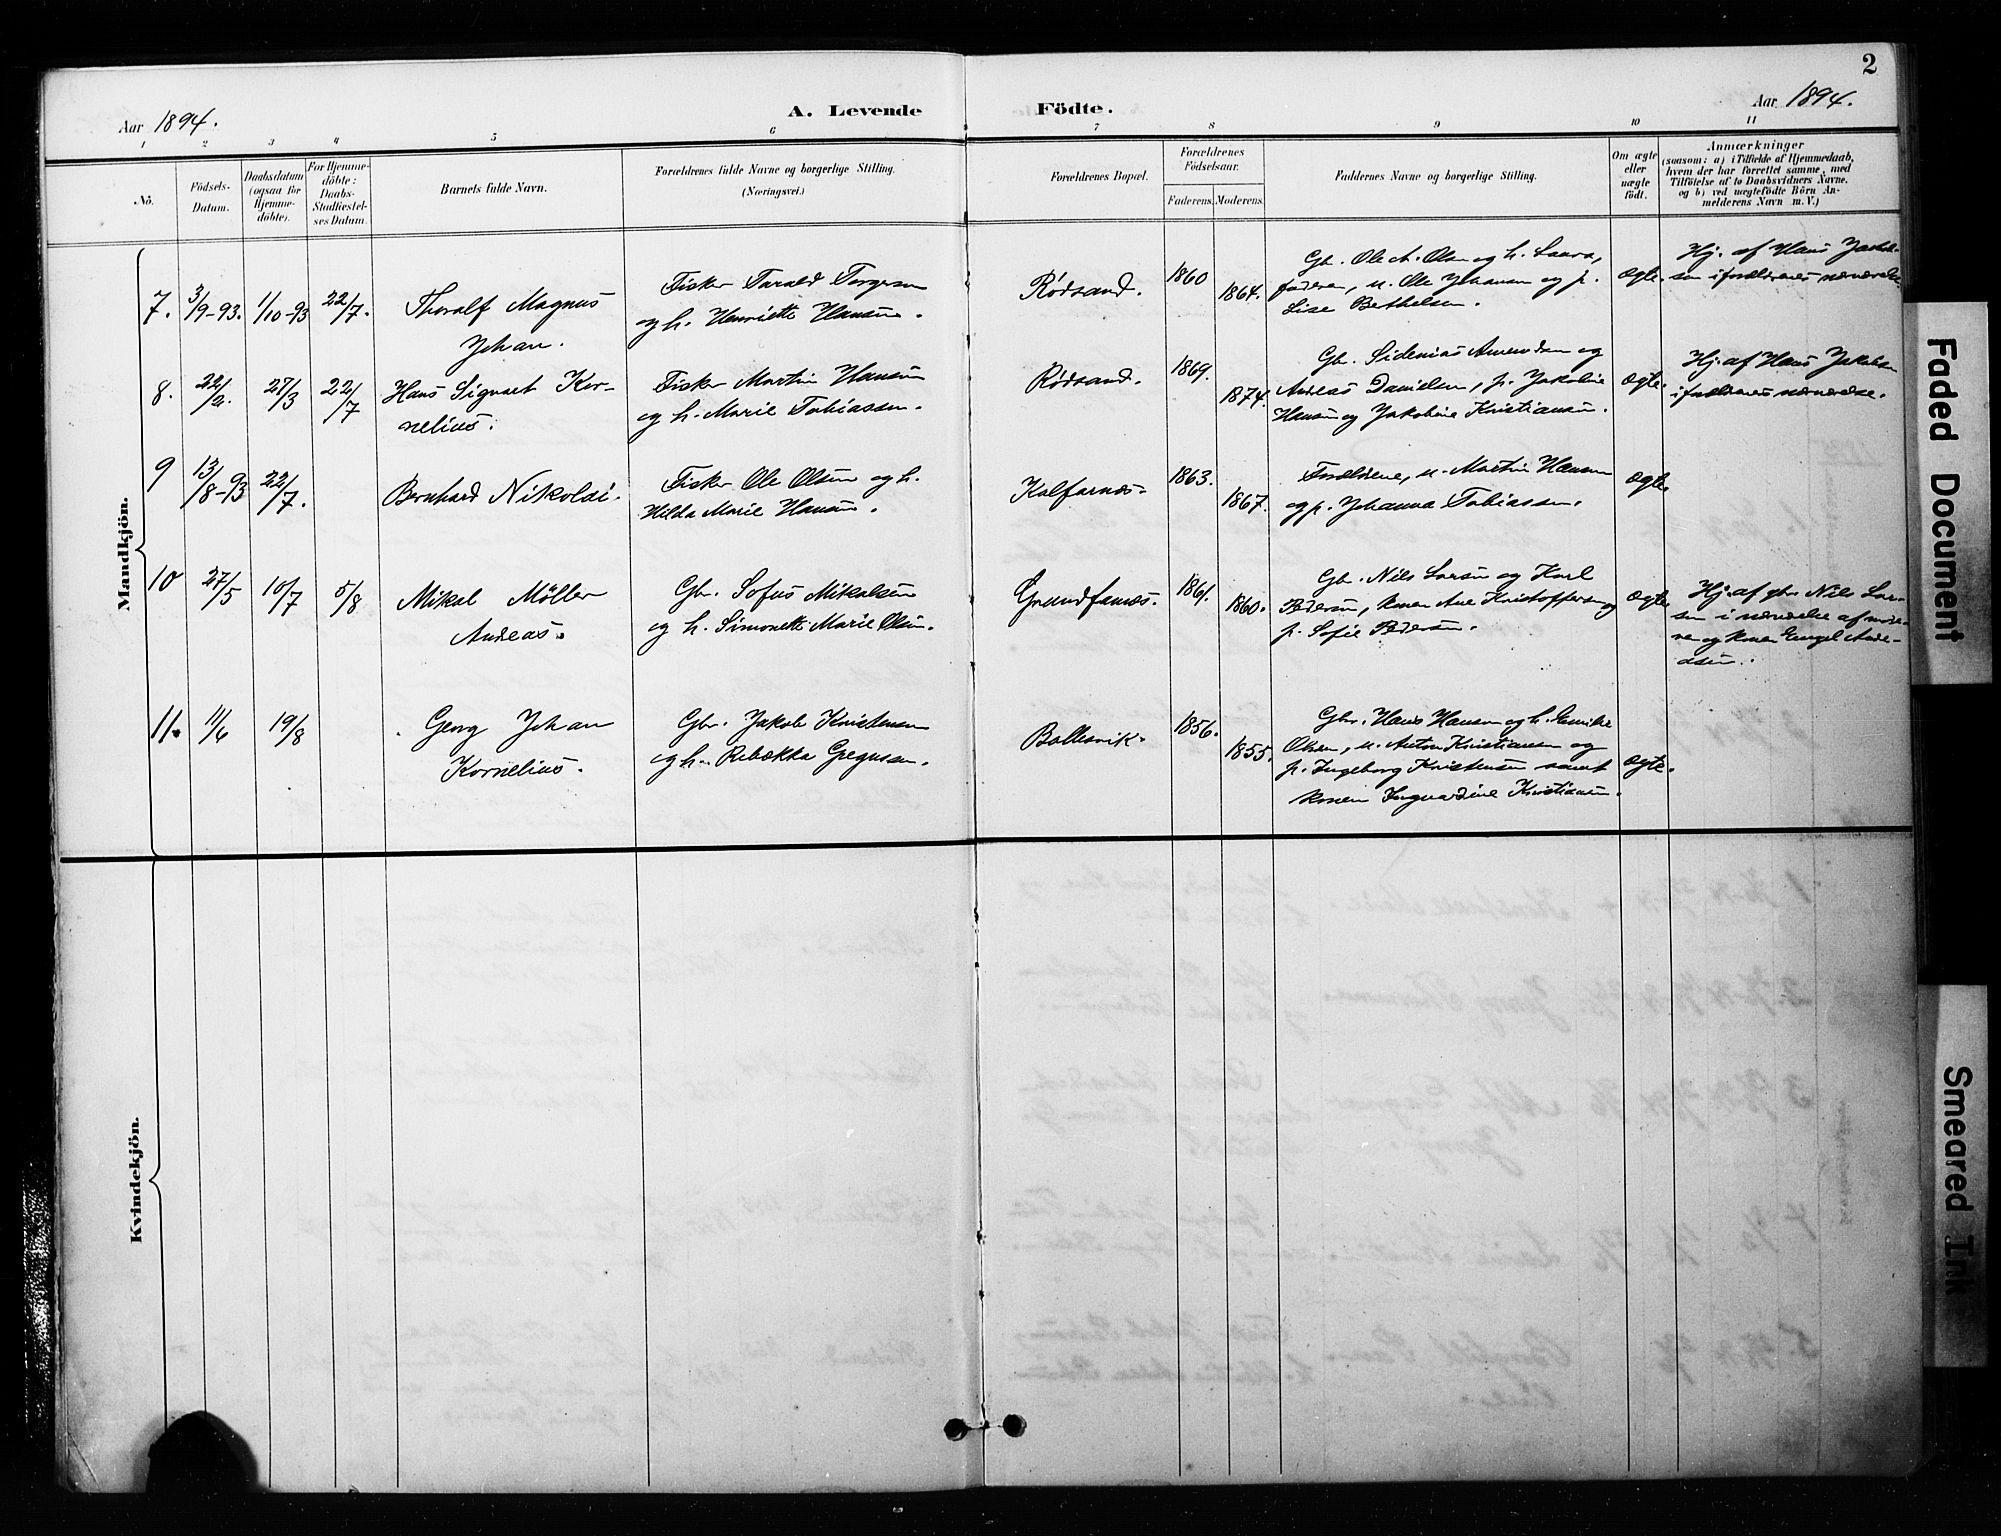 2
Aar 1894.
A. Levende Födte.
Aar 1894.
1 2 3 4 5 6 7 8 9 10 11
No.
Födsels-Datum.
Daabsdatum (ogsaa for Hjemme-döbte).
For Hjemme-döbte: Daabs-Stadfæstel-ses Datum.
Barnets fulde Navn.
Forældrenes fulde Navne og borgerlige Stilling.
(Næringsvei.)
Forældrenes Bopæl.
Forældrenes Födselsaar.
Faderens. Moderens.
Faddernes Navne og borgerlige Stilling.
Om ægte eller uægte födt.
Anmærkninger
(saasom: a) i Tilfælde af Hjemmedaab,
hvem der har forrettet samme, med
Tilföielse af to Daabsvidners Navne.
og b) ved uægtefödte Börn An-
melderens Navn m. V.)
Mandkjön.
7. 3/9-93. 1/10-93 22/7.
Thoralf Magnus
Johan.
Fisker Tarald Torgersen
og h. Henriette Hansen.
Rødsand.
1860
1864.
Gbr. Ole A. Olsen og h. Laura,
faderen, u. Ole Johansen og p.
Lise Bethelsen.
ægte.
Hj. af Hans Jakob-
sen i forældrenes nærværelse
8. 22/2. 27/3 22/7
Hans Signart Kor-
nelius.
Fisker Martin Hansen
og h. Marie Tobiassen.
Rødsand.
1869.
1874.
Gbr. Sidenius Amundsen og
Andreas Danielsen, p. Jakobine
Hansen og Jakobine Kristiansen.
ægte.
Hj. af Hans Jakobsen
i forældrenes nærværelse.
9 13/8-93 22/7.
Bernhard Nikolai.
Fisker Ole Olsen og h.
Hilda Marie Hansen.
Kalfarnæs.
1863.
1867.
Forældrene, u. Martin Hansen
og p. Johanna Tobiassen.
ægte.
10 27/5 10/7 5/8
Mikal Möller
Andreas.
Gbr. Sofus Mikalsen
og h. Simonette Marie Olsen.
Grundfarnæs.
1861.
1860.
Gbr. Nils Larsen og Karl
Pedersen, konen Ane Kristoffersen og
p. Sofie Pedersen.
ægte
Hj. af gbr. Nils Lar-
sen i nærværelse af mode-
ren og konen Engel Ande-
rsen.
11. 11/6 19/8
Georg Johan
Kornelius.
Gbr. Jakob Kristensen
og h. Rebekka Gregusen.
Ballesvik.
1856.
1855.
Gbr. Hans Hansen og h. Emilie
Olsen, u. Anton Kristiansen og
p. Ingeborg Kristensen samt
konen Ingvardine Kristiansen.
ægte.
Kvindekjön.
Faded Document
Smeared Ink